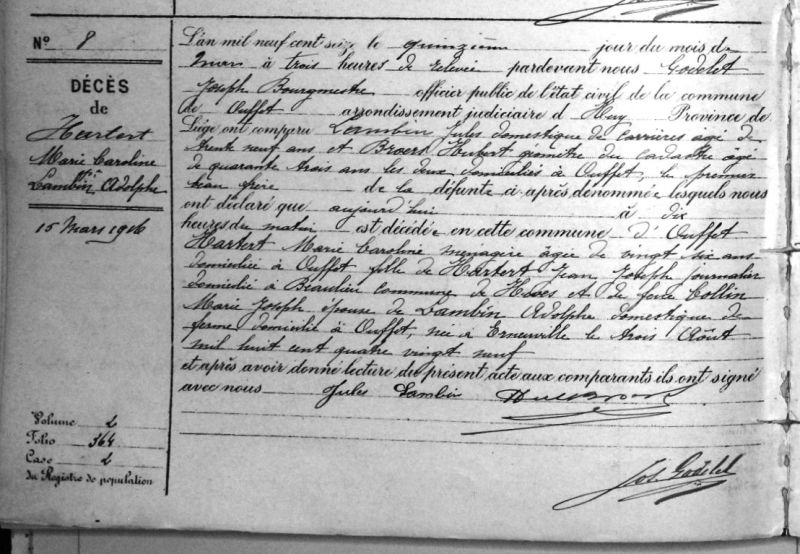 N° 8
DÉCÈS
de
Hartert
Marie Caroline
Lambin Adolphe
15 Mars 1916
L'an mil neuf cent seize le quinzième jour du mois de
Mars à trois heures de relevée pardevant nous Godelet
Joseph Bourgmestre officier public de l'état civil de la commune
de Ouffet arrondissement judiciaire d Huy Province de
Liége ont comparu Lambin Jules domestique de carrières âgé de
trente neuf ans et Hubert géomètre du cadastre âgé
de quarante trois ans les deux domiciliés à Ouffet, le premier
beau frère de la défunte ci après dénommée lesquels nous
ont déclaré que aujourd'hui à dix
heures du matin est décédée en cette commune d'Ouffet
Hartert Marie Caroline ménagère âgée de vingt six ans
domiciliée à Ouffet fille de Hartert Jean Joseph journalier
domicilié à Beaulieu commune de et de feue Collin
Marie Joseph épouse de Lambin Adolphe domestique de
ferme domicilié à Ouffet, née à Erneuville le trois Août
mil huit cent quatre vingt neuf
et après avoir donné lecture du présent acte aux comparants ils ont signé
avec nous Jules Lambin
Jos Godelet
Volume 2
Folio 364
Case 2
du Registre de population